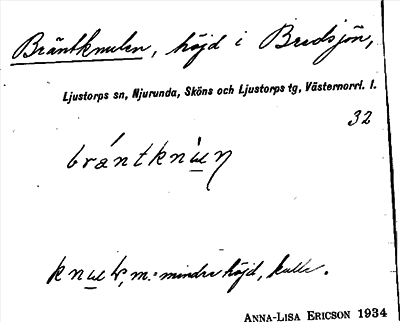 Bräntknulen, höjd i Bredsjön,
Ljustorps sn, Njurunda, Sköns och Ljustorps tg, Västernorrl. l.
32
bräntknu̲n
m. = mindre höjd, kulle.
ANNA-LISA ERICSON 1934